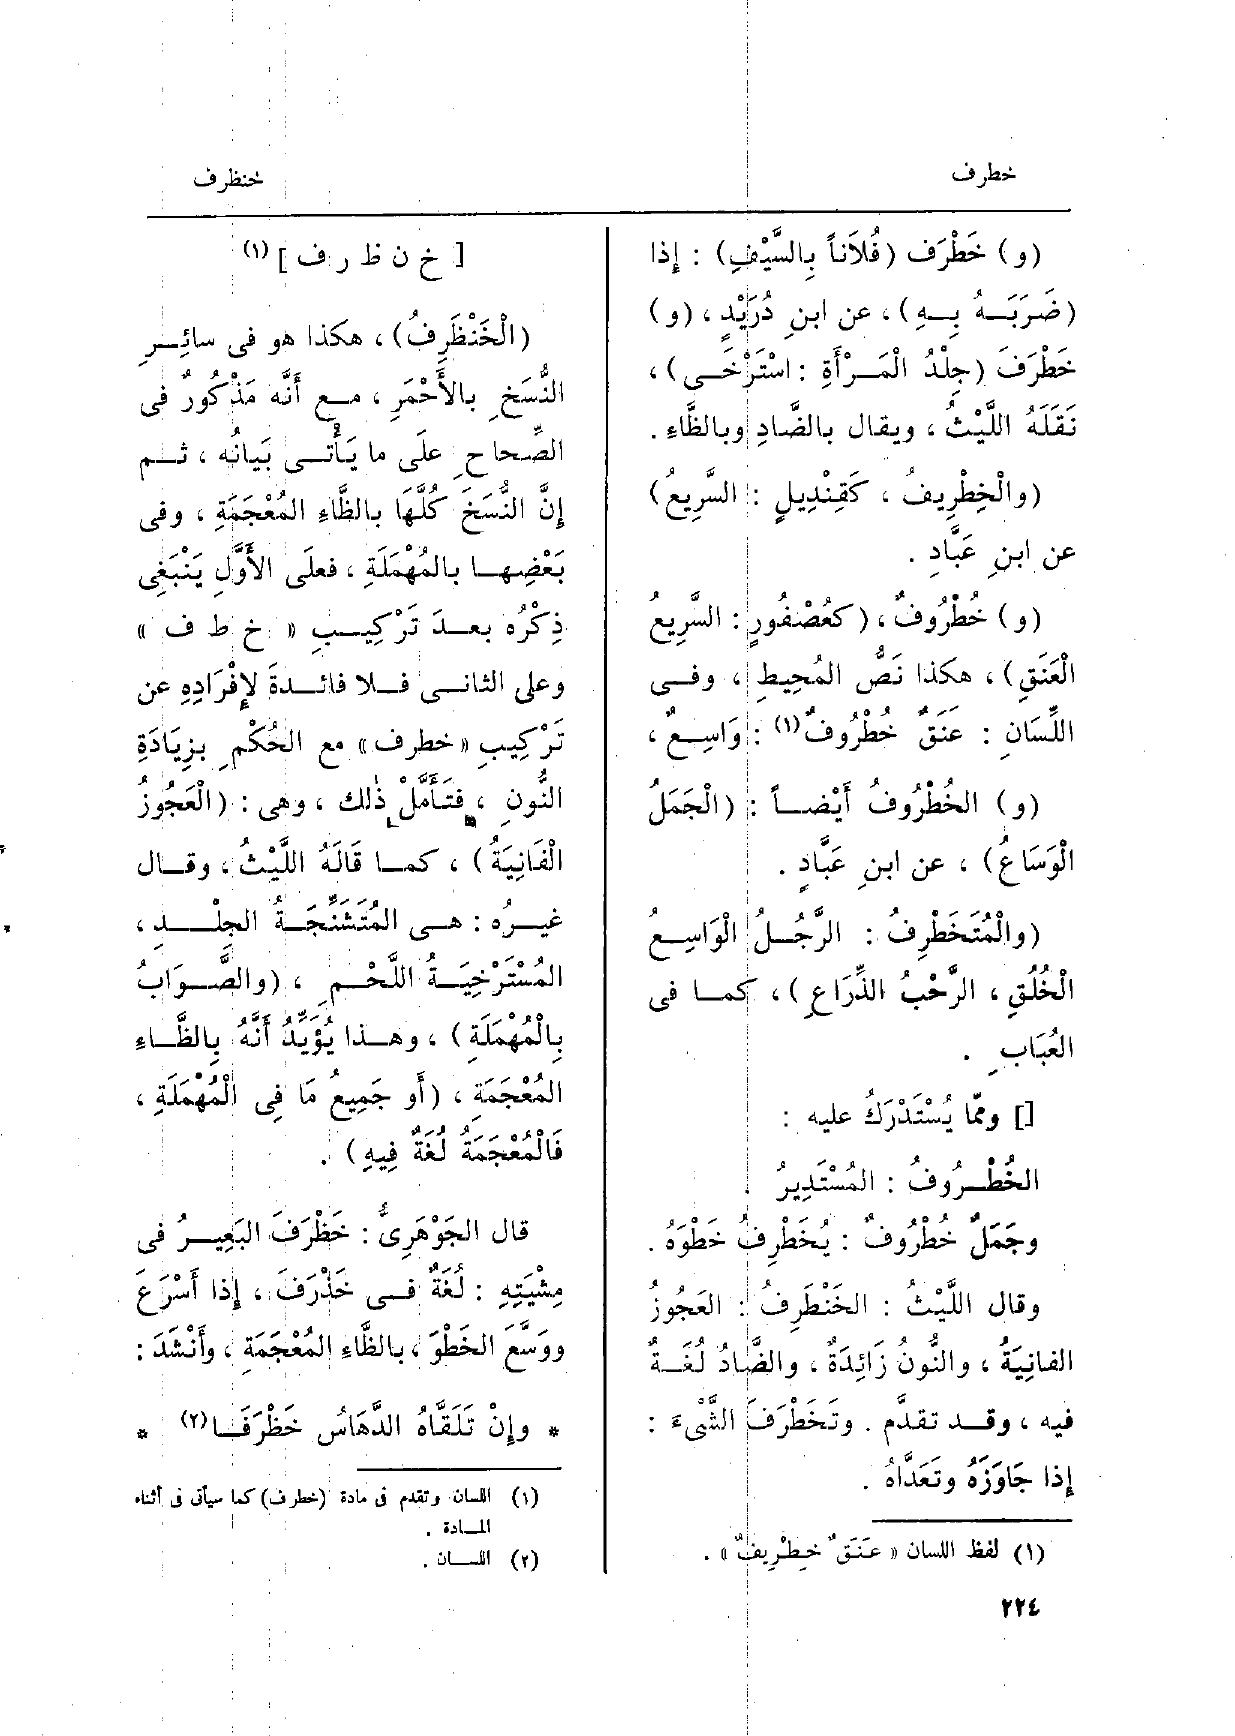 خطرف
خنظرف
(و) خَطْرَف (فُلَاناً بِالسَّيْفِ) : إذا
(ضَرَبَهُ بِهِ) ، عن ابنِ دُرَيْدٍ ، (و)
خَطْرَفَ (جِلْدُ الْمَرْأَةِ : اسْتَرْخَى) ،
نَقَلَهُ اللَّيْثُ ، ويقال بالضَّادِ وبالظَّاءِ .
(والْخِطْرِيفُ ، كَقِنْدِيلٍ : السَّرِيعُ)
عن ابنِ عَبَّادٍ .
(و) خُطْرُوفٌ ، (كعُصْفُورٍ : السَّرِيعُ
الْعَنَقِ) ، هكذا نَصُّ المُحِيطِ ، وفى
اللِّسَانِ : عَنَقٌ خُطْرُوفٌ(١) : وَاسِعٌ ،
(و) الخُطْرُوفُ أَيْضاً : (الْجَمَلُ
الْوَسَاعُ) ، عن ابنِ عَبَّادٍ .
(والْمُتَخَطْرِفُ : الرَّجُلُ الْوَاسِعُ
الْخُلُقِ ، الرَّحْبُ الذِّرَاعِ) ، كما فى
العُبَابِ .
[] ومّا يُسْتَدْرَكُ عليه :
الخُطْرُوفُ : المُسْتَدِيرُ .
وجَمَلٌ خُطْرُوفٌ : يُخَطْرِفُ خَطْوَهُ .
وقال اللَّيْثُ : الخَنْطَرِفُ : العَجُوزُ
الفانِيَةُ ، والنُّونُ زَائِدَةٌ ، والضَّادُ لُغَةٌ
فيه ، وقد تقدَّم . وتَخَطْرَفَ الشَّىْءَ :
إذا جَاوَزَهُ وتَعَدَّاهُ .
(١) لفظ اللسان « عَنَقٌ خِطْرِيفٌ » .
٢٢٤
[ خ ن ظ ر ف ](١)
(الْخَنْظَرِفُ) ، هكذا هو فى سائِرِ
النُّسَخِ بالأَحْمَرِ ، مع أَنَّه مَذْكُورٌ فى
الصِّحاحِ علَى ما يَأْتى بَيَانُه ، ثم
إنَّ النُّسَخَ كُلَّهَا بالظَّاءِ المُعْجَمَةِ ، وفى
بَعْضِها بالمُهْمَلَةِ ، فعلَى الأَوَّلِ يَنْبَغِى
ذِكْرُه بعدَ تَرْكِيبِ « خ ط ف »
وعلى الثانى فلا فائدةَ لإِفْرَادِهِ عن
تَرْكِيبِ «خطرف» مع الحُكْمِ بزِيَادَةِ
النُّونِ ، فتَأَمَّلْ ذٰلك ، وهى : (الْعَجُوزُ
الْفَانِيَةُ) ، كما قَالَهُ اللَّيْثُ ، وقال
غيرُه : هى المُتَشَنِّجَةُ الجِلْدِ ،
المُسْتَرْخِيَةُ اللَّحْمِ ، (والصَّوَابُ
بِالْمُهْمَلَةِ) ، وهذا يُؤَيِّدُ أَنَّهُ بِالظَّاءِ
المُعْجَمَةِ ، (أو جَمِيعُ مَا فِى الْمُهْمَلَةِ ،
فَالْمُعْجَمَةُ لُغَةٌ فِيهِ) .
قال الجَوْهَرِىُّ : خَظْرَفَ البَعِيرُ فى
مِشْيَتِهِ : لُغَةٌ فى خَذْرَفَ ، إذا أَسْرَعَ
ووَسَّعَ الخَطْوَ ، بالظَّاءِ المُعْجَمَةِ ، وأَنْشَدَ :
* وإنْ تَلَقَّاهُ الدَّهَاسُ خَظْرَفَا(٢) *
(١) اللسان وتقدم فى مادة (خطرف) كما سيأتى فى أثناء
المادة .
(٢) اللسان .